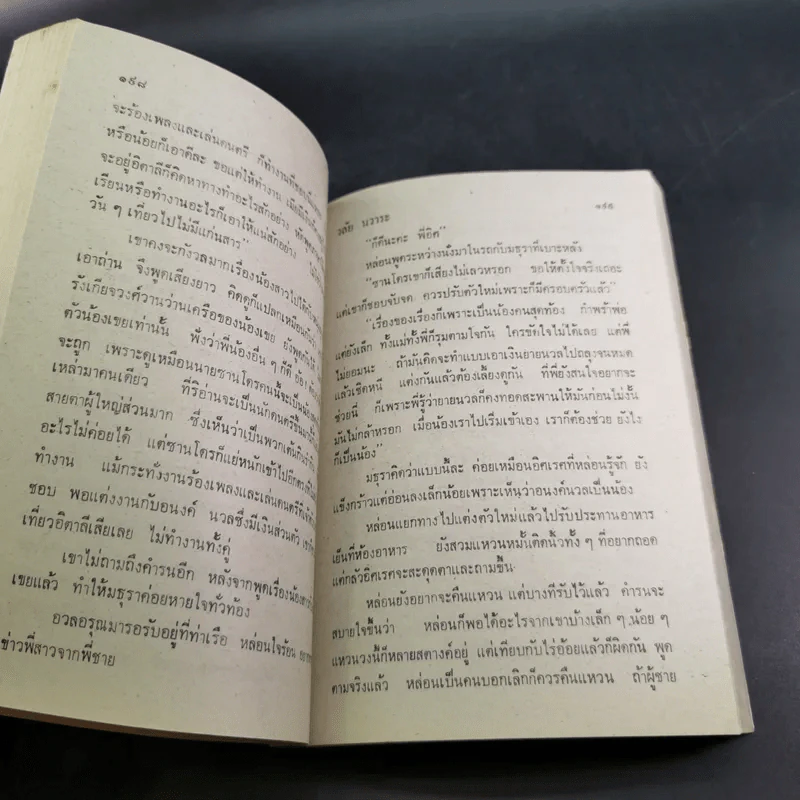 ๑๙๘
จะร้องเพลงและเล่นดนตรี ก็ทำงานที่ชอบ
หรือน้อยก็เอาดีละ ขอแต่ให้ทำงาน เมื่อ
จะอยู่อิตาลีก็คิดหาทางทำอะไรสักอย่าง
เรียนหรือทำงานอะไรก็เอาให้แน่สักอย่าง
วัน ๆ เที่ยวไปไม่มีแก่นสาร"
เขาคงจะกังวลมากเรื่องน้องสาวไปได้
เอาถ่าน จึงพูดเสียงยาว คิดดูก็แปลกเหมือนกัน
รังเกียจวงศ์วานว่านเครือของน้องเขย ยังพูด
ตัวน้องเขยเท่านั้น ฟังว่าพี่น้องอื่น ๆ ก็ดี
จะถูก เพราะดูเหมือนนายซานโดรคนนี้จะเป็น
เหล่ามาคนเดียว ที่ริอ่านจะเป็นนักดนตรีขึ้นมา
สายตาผู้ใหญ่ส่วนมาก ซึ่งเห็นว่าเป็นพวกเต้นกินรำกิน
อะไรไม่ค่อยได้ แต่ซานโดรก็แย่หนักเข้าไปอีกตรงที่
ทำงาน แม้กระทั่งงานร้องเพลงและเล่นดนตรีที่
ชอบ พอแต่งงานกับอนงค์ นวลซึ่งมีเงินส่วนตัว
เที่ยวอิตาลีเสียเลย ไม่ทำงานทั้งคู่
เขาไม่ถามถึงคำรนอีก หลังจากพูดเรื่องน้องสาว
เขยแล้ว ทำให้มธุราค่อยหายใจทั่วท้อง
อวลอรุณมารอรับอยู่ที่ท่าเรือ หล่อนใจร้อน
ข่าวพี่สาวจากพี่ชาย
วลัย นวาระ ๑๙๙
"ก็ดีนะคะ พี่อิศ"
หล่อนพูดระหว่างนั่งมาในรถกับมธุราที่เบาะหลัง
"ซานโดรเขาก็เสียงไม่เลวหรอก ขอให้ตั้งใจจริงเถอะ
แต่เขาก็ชอบจับจด ควรปรับตัวใหม่เพราะก็มีครอบครัวแล้ว"
"เรื่องของเรื่องก็เพราะเป็นน้องคนสุดท้อง กำพร้าพ่อ
แต่ยังเล็ก ทั้งแม่ทั้งพี่ก็รุมตามใจกัน ใครขัดใจไม่ได้เลย แต่พี่
ไม่ยอมนะ ถ้ามันคิดจะทำแบบเอาเงินยายนวลไปถลุงจนหมด
แล้วเชิดหนี แต่งกันแล้วต้องเลี้ยงดูกัน ที่พี่ยังสนใจอยากจะ
ช่วยนี่ ก็เพราะพี่รู้ว่ายายนวลคงทอดสะพานให้มันก่อนไม่งั้น
มันไม่กล้าหรอก เมื่อน้องเราไปเริ่มเข้าเอง เราก็ต้องช่วย ยังไง
ก็เป็นน้อง"
มธุราคิดว่าแบบนี้ละ ค่อยเหมือนอิศเรศที่หล่อนรู้จัก ยัง
แข็งกร้าวแต่อ่อนลงเล็กน้อยเพราะเห็นว่าอนงค์นวลเป็นน้อง
หล่อนแยกทางไปแต่งตัวใหม่แล้วไปรับประทานอาหาร
เย็นที่ห้องอาหาร ยังสวมแหวนหมั้นติดนิ้วทั้ง ๆ ที่อยากถอด
แต่กลัวอิศเรศจะสะดุดตาและถามขึ้น
หล่อนยังอยากจะคืนแหวน แต่บางทีรับไว้แล้ว คำรนจะ
สบายใจขึ้นว่า หล่อนก็พอได้อะไรจากเขาบ้างเล็ก ๆ น้อย ๆ
แหวนวงนี้ก็หลายสตางค์อยู่ แต่เทียบกับไร่อ้อยแล้วก็ผิดกัน พูด
ตามจริงแล้ว หล่อนเป็นคนบอกเลิกก็ควรคืนแหวน ถ้าผู้ชาย